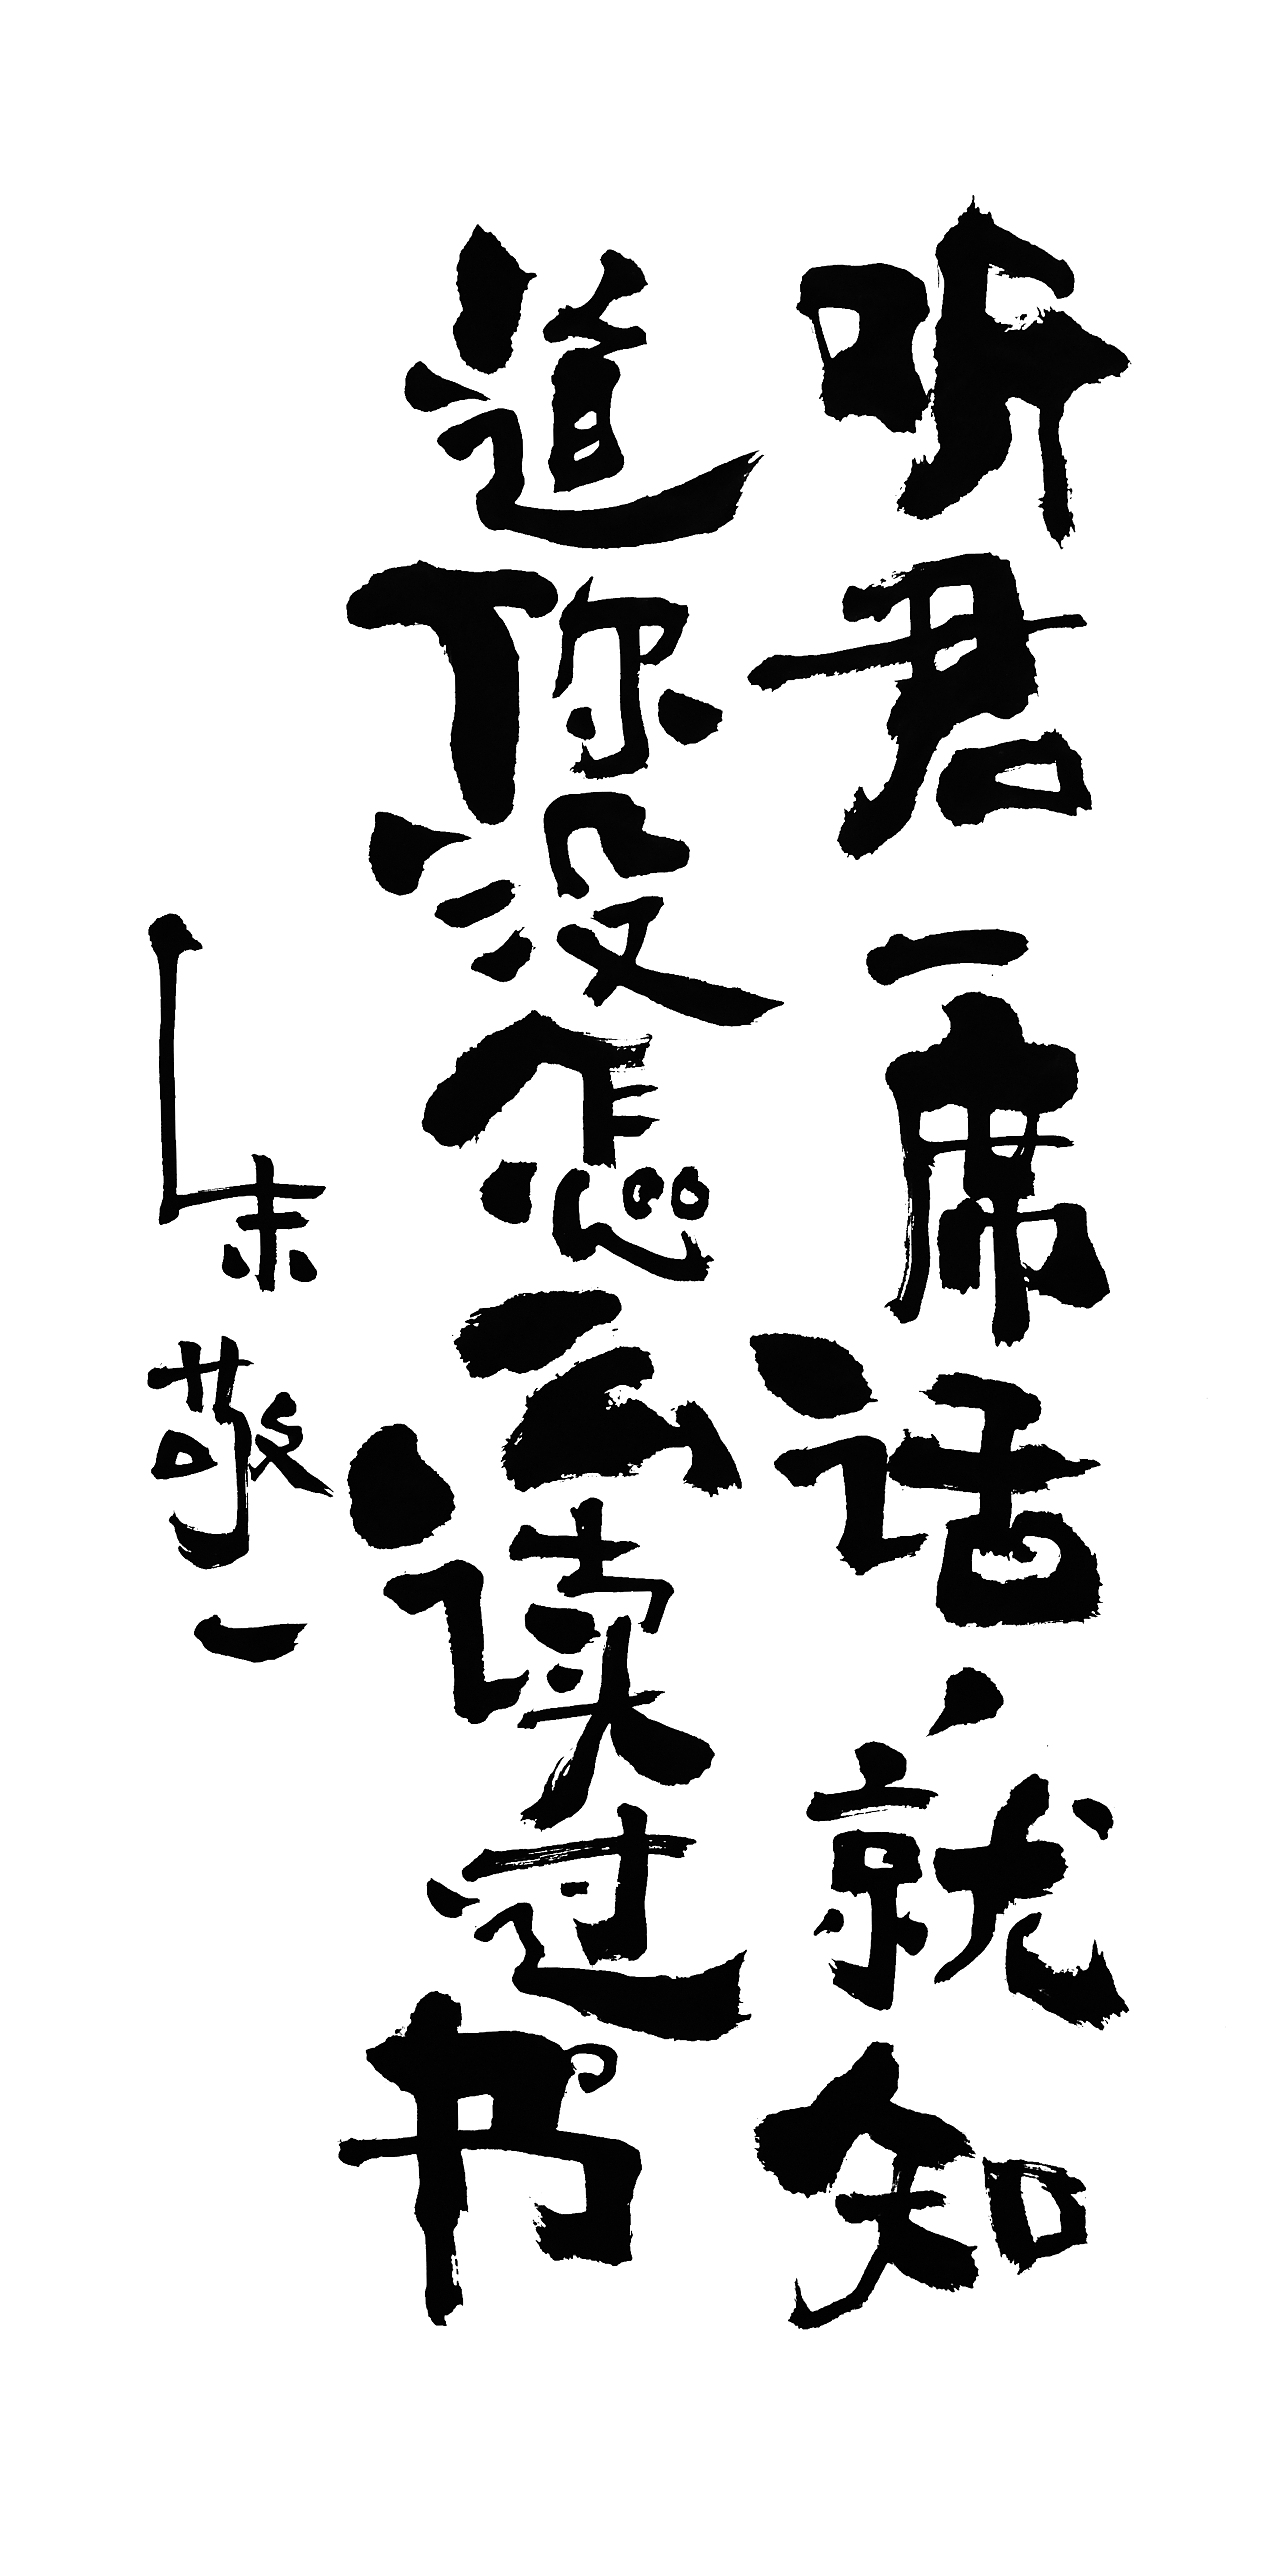 听君一席话，就知
道你没怎么读过书
朱敬一